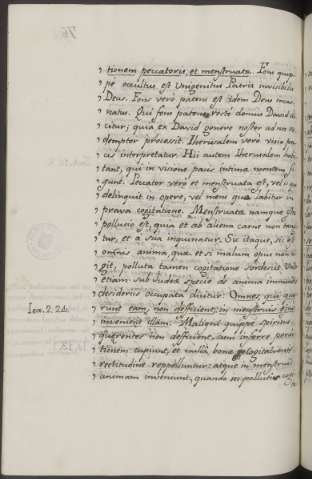 76.
„ tionem peccatoris, et menstruatæ. Fons quip
„ pe occultus est Unigenitus Patris invisibilis
„ Deus. Fons verò patens est idem Deus incar
„ natus. Qui fons patens rectè domus David di
„ citur; quia ex David genere noster ad nos re
„ demptor processit. Iherusalem verò visio pa
„ cis interpretatur. Hi autem Iherusalem habi
„ tant, qui in visione pacis intima mentem
„ gunt. Peccator verò et menstruata est, vel qui
„ delinquit in opere, vel mens quæ labitur in
„ prava cogitatione. Menstruata namque
„ pollutio est, quia et ab aliena carne non tangi
„ tur, et à sua inquinatur. Sic itaque, si est
„ omnis anima, quæ et si malum opus non a
„ git, polluta tamen cogitatione sordescit. Unde
„ etiam sub Iudææ specie de anima immundis
„ desideriis occupata dicitur: Omnes, qui quæ
Ier. 2. 24. „ runt eam, non deficient, in menstruis ejus
„ invenient illam. Maligni quippe spiritus
„ quærentes non deficiunt, cum inferre perdi
„ tionem cupiunt, et nullâ bonæ cogitationis
„ rectitudine repelluntur: atque in menstruis
„ animam inveniunt, quando eos pollutis cogi